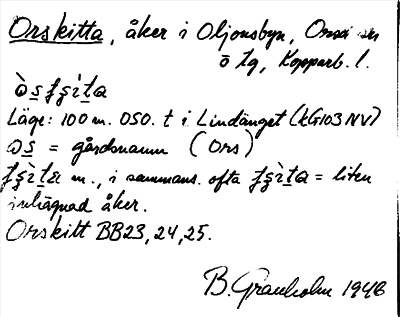 Orskitta, åker i Oljonsbyn, Orsa sn
ö tg, Kopparb. l.
Läge: 100 m. OSO. t i Lindänget (kG103NV)
= gårdsnamn (Ors)
m., i sammans. ofta = liten
inhägnad åker.
Orskitt BB23, 24, 25.
B. Granholm 1946